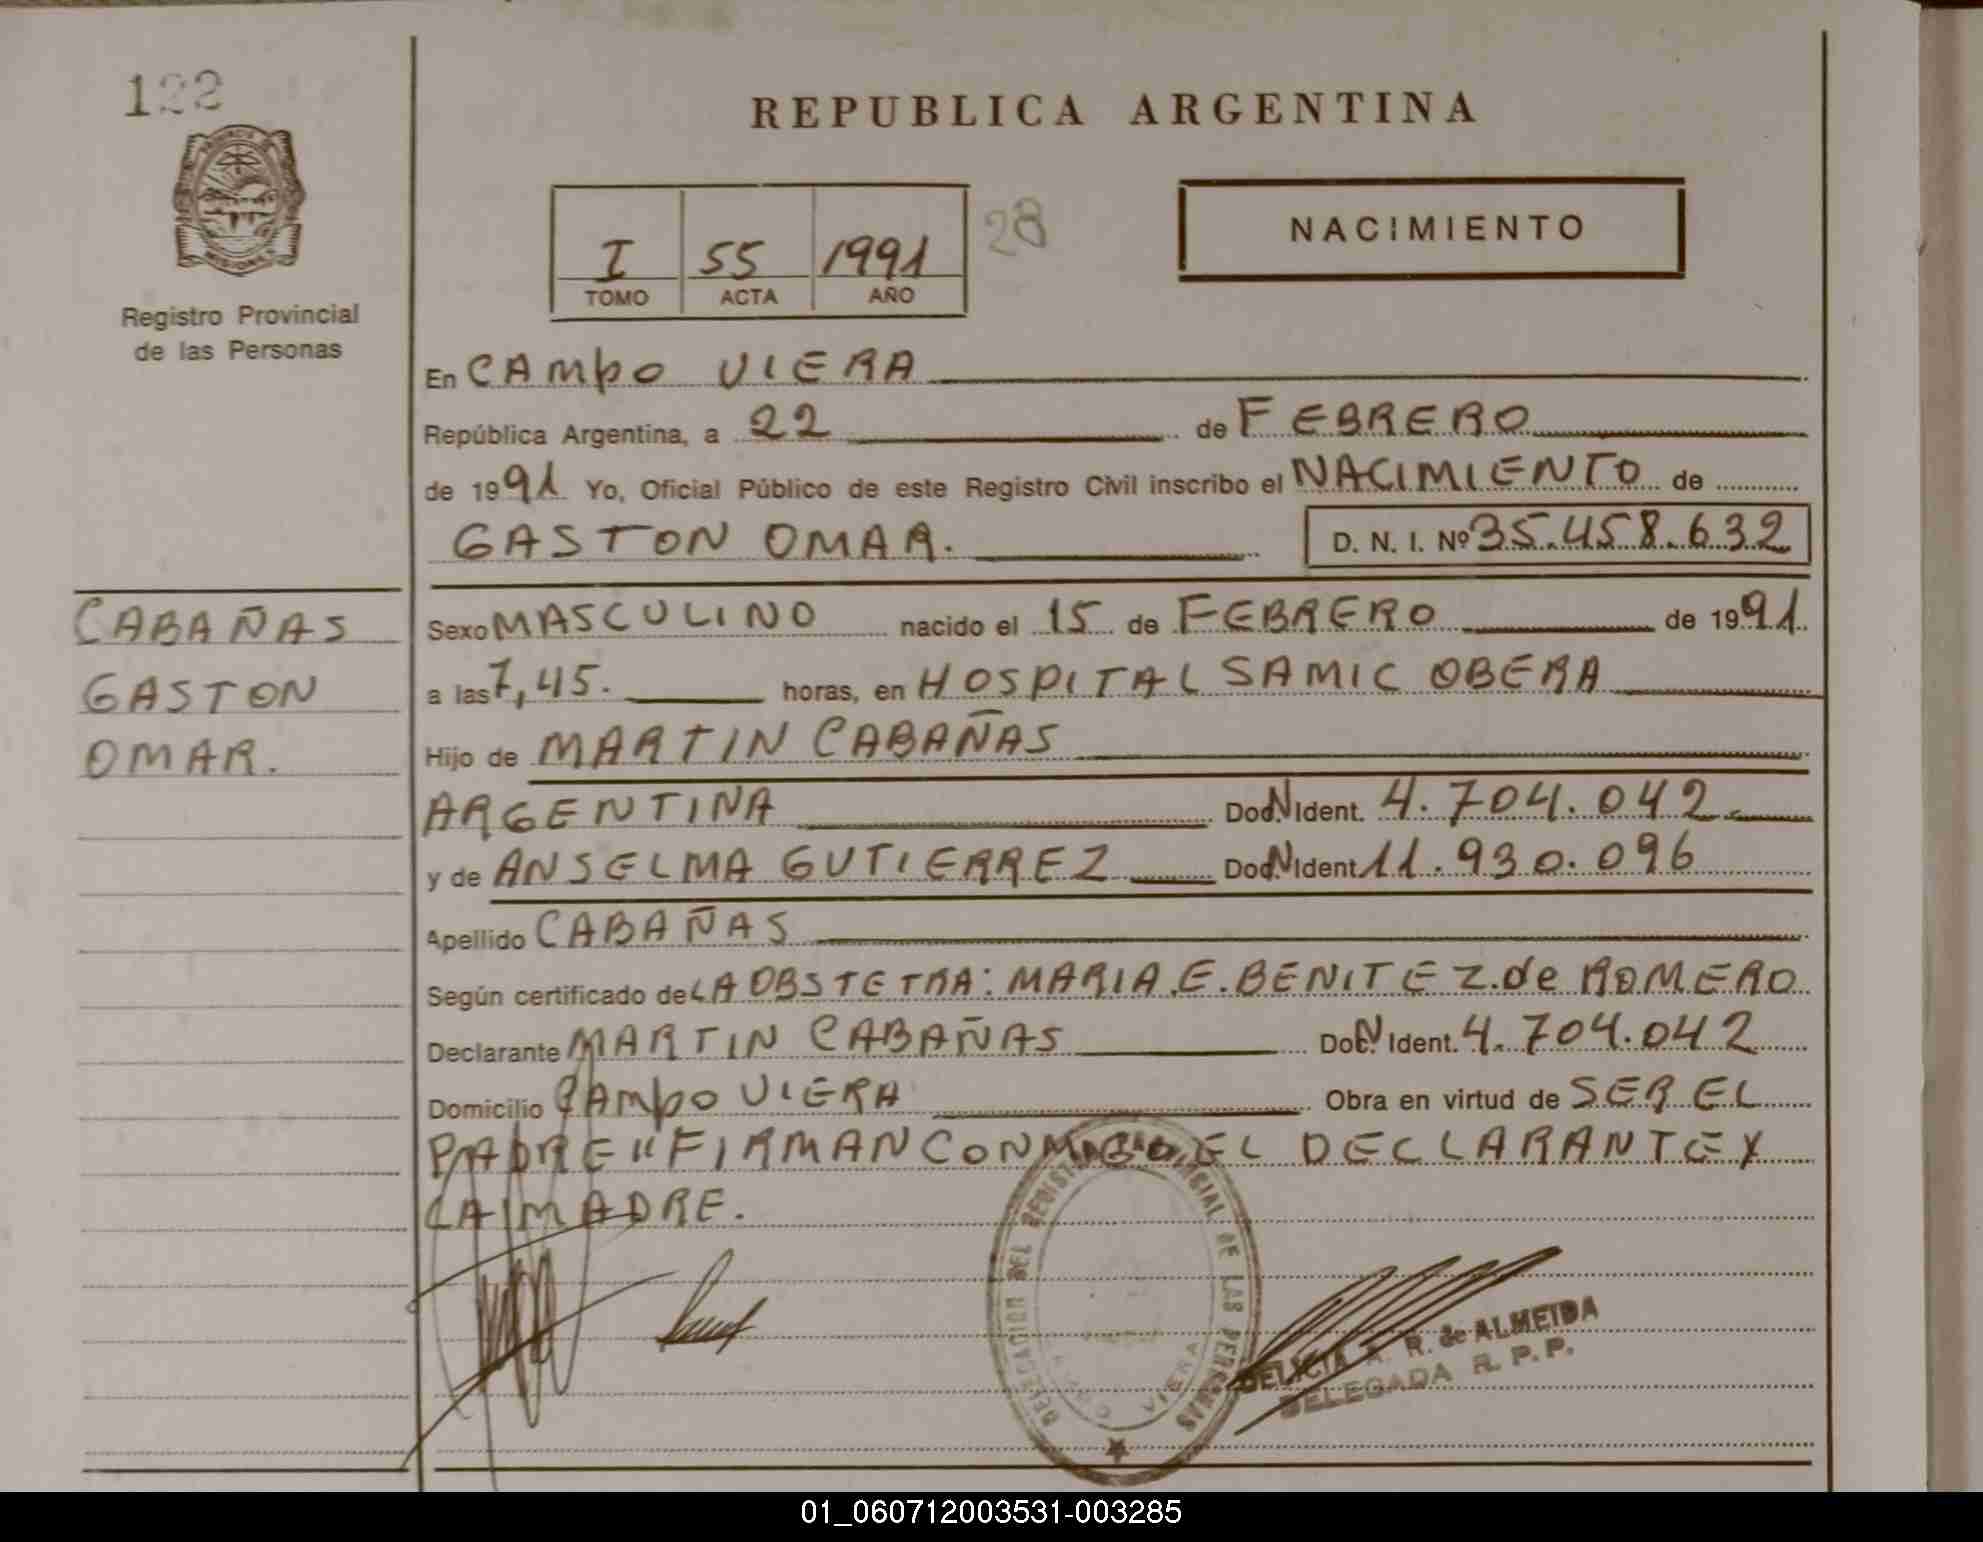 122
REPUBLICA ARGENTINA
I 55 1991 28
TOMO ACTA AÑO
NACIMIENTO
Registro Provincial
de las Personas
En CAMPO VIERA
República Argentina, a 22 de FEBRERO
de 1991 Yo, Oficial Público de este Registro Civil inscribo el NACIMIENTO de
GASTON OMAR. D. N. I. Nº 35.458.632
CABAÑAS
GASTON
OMAR.
Sexo MASCULINO nacido el 15 de FEBRERO de 1991.
a las 7,45. horas, en HOSPITAL SAMIC OBERA
Hijo de MARTIN CABAÑAS
ARGENTINA Doc. N Ident. 4.704.042
y de ANSELMA GUTIERREZ Doc. N Ident 11.930.096
Apellido CABAÑAS
Según certificado de LA OBSTETRA: MARIA.E.BENITEZ.de ROMERO
Declarante MARTIN CABAÑAS Doc. N Ident. 4.704.042
Domicilio CAMPO VIERA Obra en virtud de SER EL
PADRE "FIRMAN CONMIGO, EL DECLARANTE Y
LA MADRE.
DELEGACION DEL REGISTRO PROVINCIAL DE LAS PERSONAS
CAMPO VIERA
DELICIA A. R. de ALMEIDA
DELEGADA R. P. P.
01_060712003531-003285